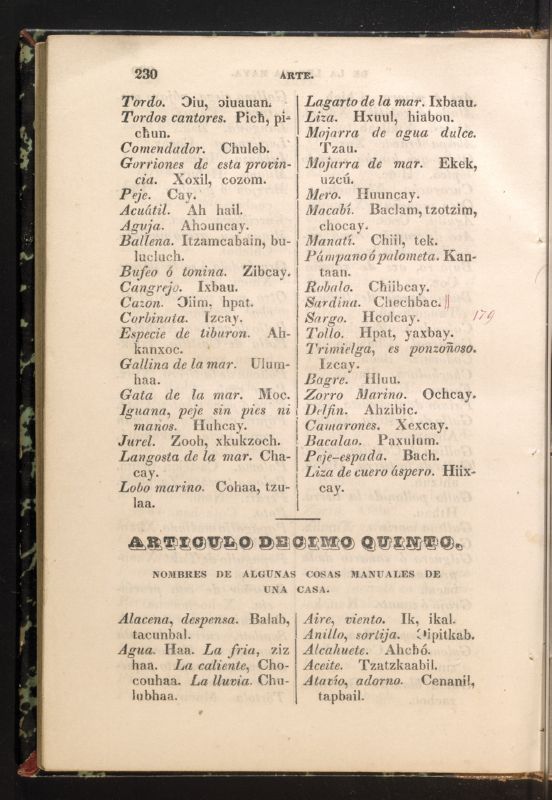 230
ARTE.
Tordo. Ɔiu, ɔiuauan.
Tordos cantores. Picħ, pi-
cħun.
Comendador. Chuleb.
Gorriones de esta provin-
cia. Xoxil, cozom.
Peje. Cay.
Acuátil. Ah hail.
Aguja. Ahɔuncay.
Ballena. Itzamcabain, bu-
lucluch.
Bufeo ó tonina. Zibcay.
Cangrejo. Ixbau.
Cazon. Ɔiim, hpat.
Corbinata. Izcay.
Especie de tiburon. Ah-
kanxoc.
Gallina de la mar. Ulum-
haa.
Gata de la mar. Moc.
Iguana, peje sin pies ni
manos. Huhcay.
Jurel. Zooh, xkukzoch.
Langosta de la mar. Cha-
cay.
Lobo marino. Cohaa, tzu-
laa.
Lagarto de la mar. Ixbaau.
Liza. Hxuul, hiabou.
Mojarra de agua dulce.
Tzau.
Mojarra de mar. Ekek,
uzcú.
Mero. Huuncay.
Macabí. Baclam, tzotzim,
chocay.
Manatí. Chiil, tek.
Pámpano ó palometa. Kan-
taan.
Robalo. Chiibcay.
Sardina. Chechbac. ||
Sargo. Hcolcay. 179
Tollo. Hpat, yaxbay.
Trimielga, es ponzoñoso.
Izcay.
Bagre. Hluu.
Zorro Marino. Ochcay.
Delfin. Ahzibic.
Camarones. Xexcay.
Bacalao. Paxulum.
Peje-espada. Bach.
Liza de cuero áspero. Hiix-
cay.
ARTICULO DECIMO QUINTO.
NOMBRES DE ALGUNAS COSAS MANUALES DE
UNA CASA.
Alacena, despensa. Balab,
tacunbal.
Agua. Haa. La fria, ziz
haa. La caliente, Cho-
couhaa. La lluvia. Chu-
lubhaa.
Aire, viento. Ik, ikal.
Anillo, sortija. Ɔipitkab.
Alcahuete. Ahchó.
Aceite. Tzatzkaabil.
Atavío, adorno. Cenanil,
tapbail.